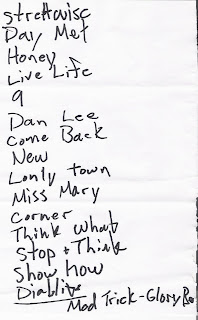 strettwise
Day Met
Honey
Live Life
9
Dan Lee
Come Back
New
Lonly town
Miss Mary
Corner
Think what
Stop + Think
Show how
Diablite
Mod Trick - Glory